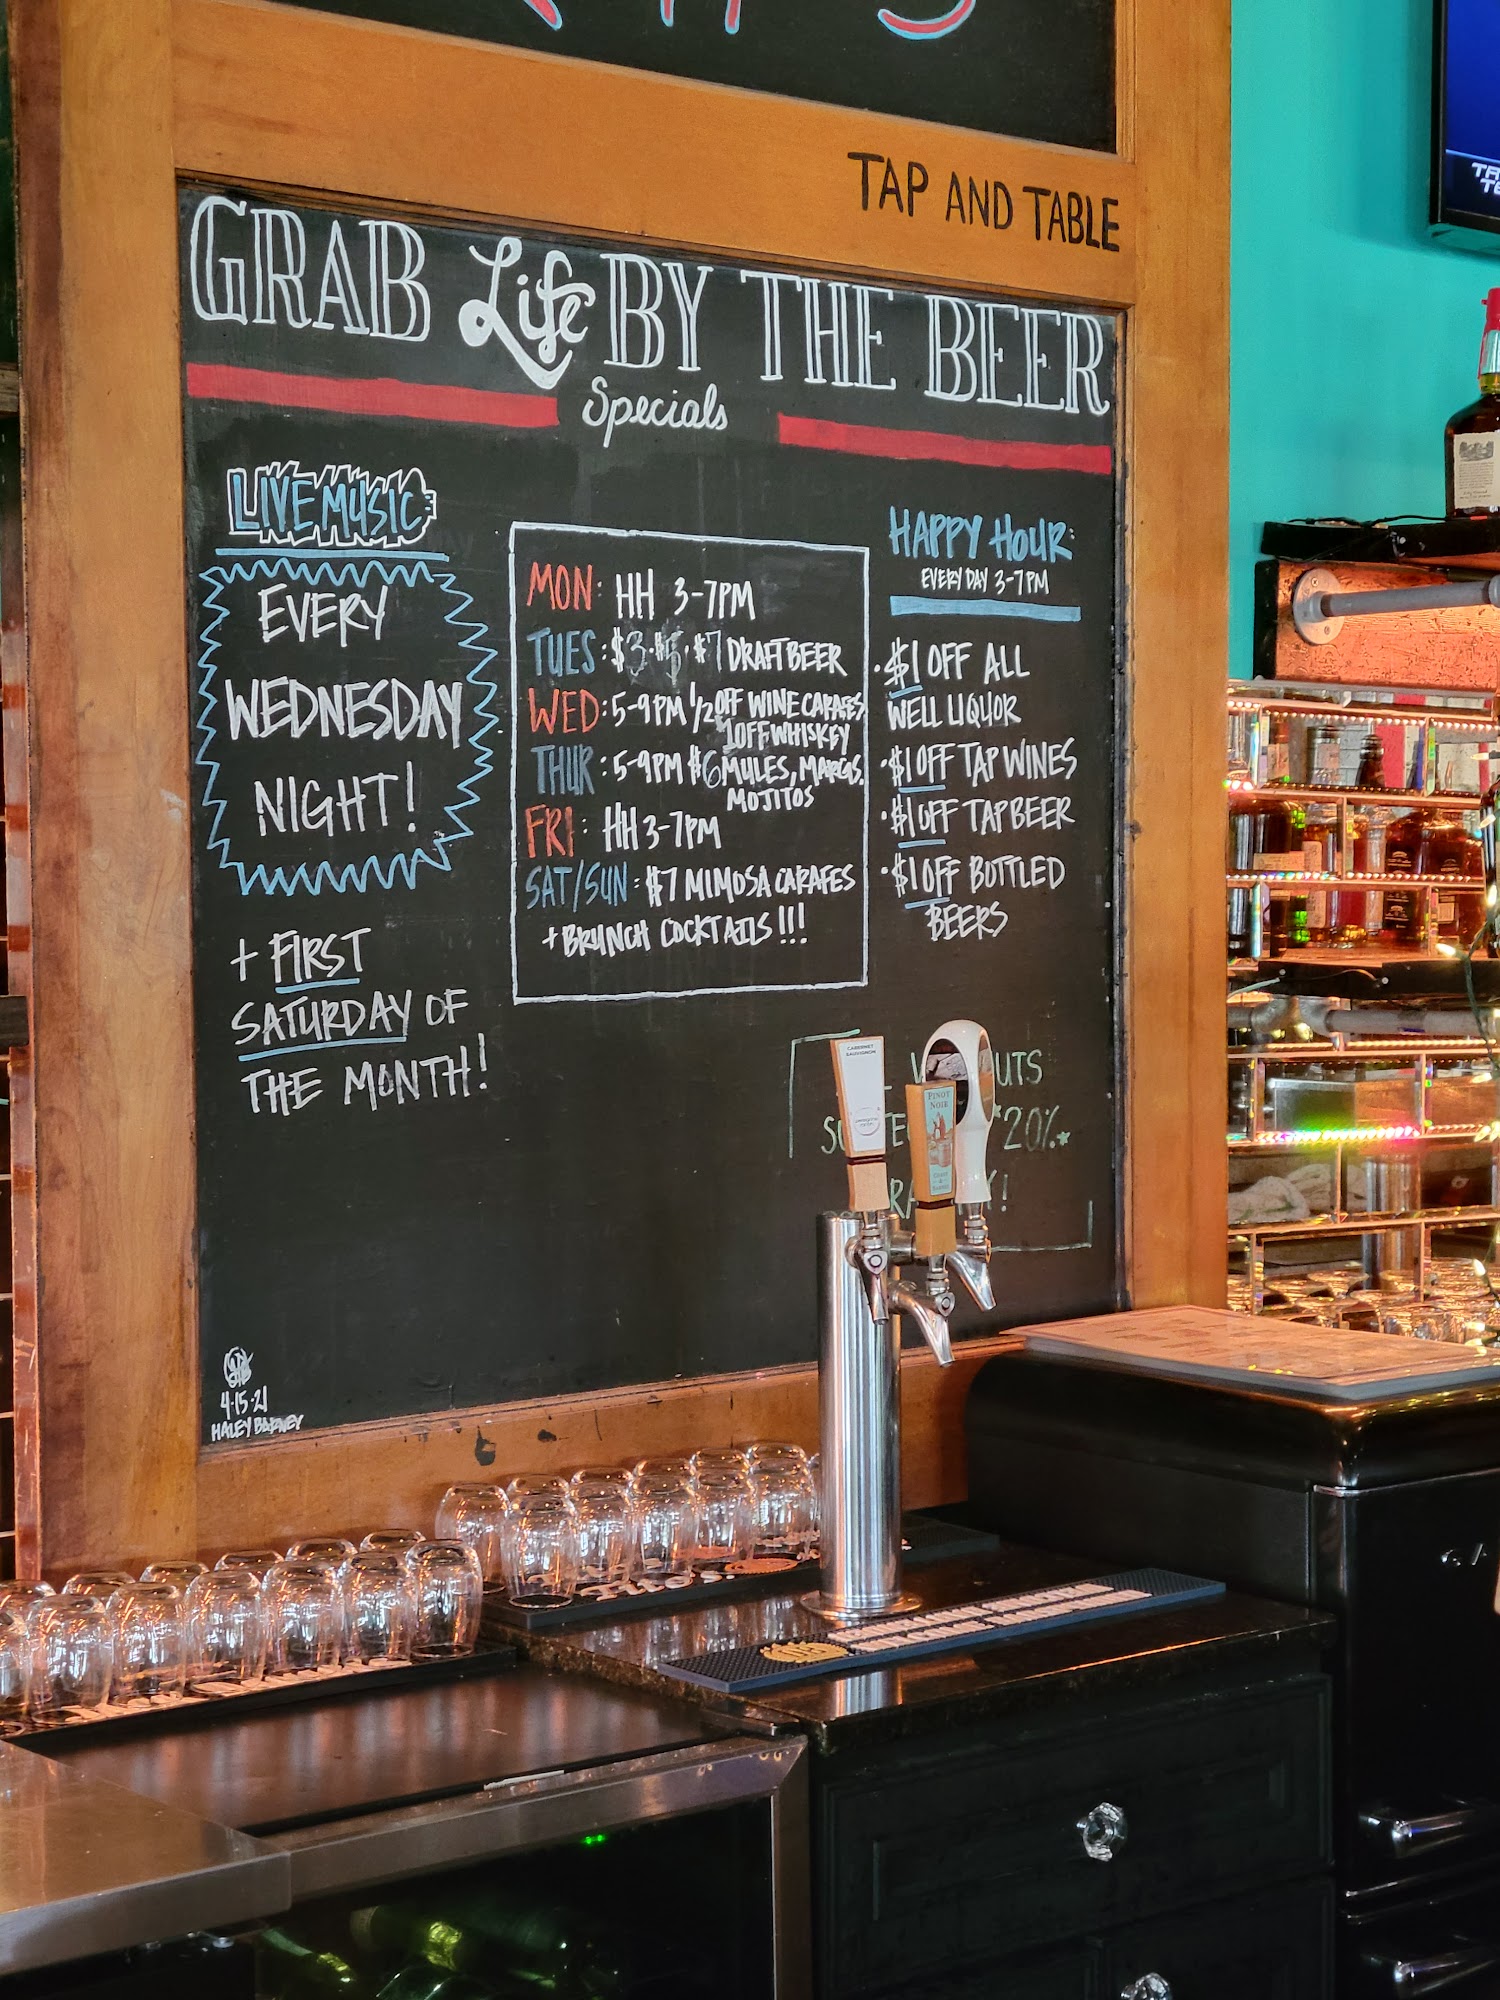 TAP AND TABLE
GRAB Life BY THE BEER
Specials
LIVE MUSIC
EVERY
WEDNESDAY
NIGHT!
+ FIRST
SATURDAY OF
THE MONTH!
MON: HH 3-7PM
TUES: $3·$5·$7 DRAFT BEER
WED: 5-9PM 1/2 OFF WINE CARAFES
OFF WHISKEY
THUR: 5-9PM $6 MULES, MARGS,
MOJITOS
FRI: HH 3-7PM
SAT/SUN: $7 MIMOSA CARAFES
+ BRUNCH COCKTAILS!!!
HAPPY HOUR:
EVERY DAY 3-7PM
·$1 OFF ALL
WELL LIQUOR
·$1 OFF TAP WINES
·$1 OFF TAP BEER
·$1 OFF BOTTLED
BEERS
20%
CABERNET
SAUVIGNON
PINOT
NOIR
4·15·21
HALEY BARNEY